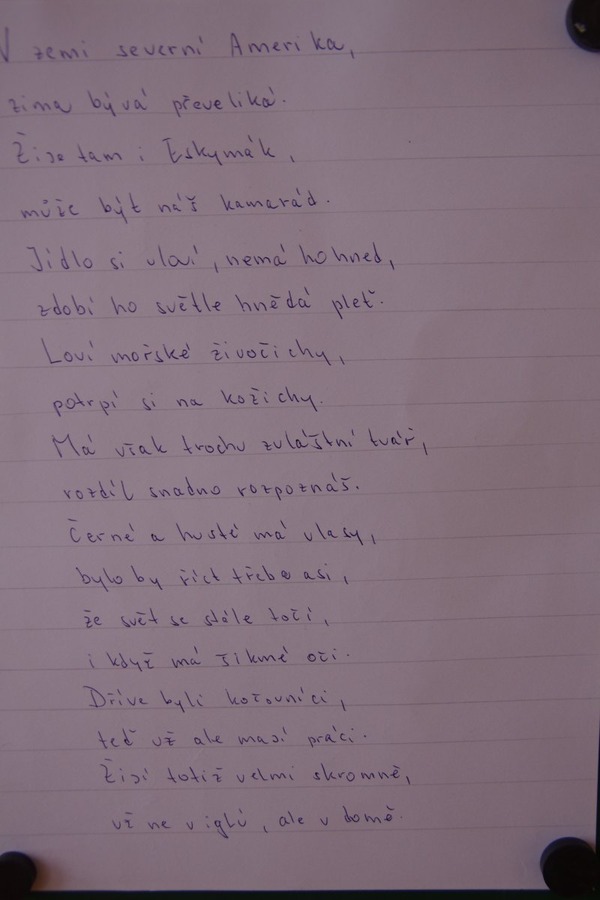 V zemi severní Amerika,
zima bývá převeliká.
Žije tam i Eskymák,
může být náš kamarád.
Jídlo si uloví, nemá ho hned,
zdobí ho světle hnědá pleť.
Loví mořské živočichy,
potrpí si na kožichy.
Má však trochu zvláštní tvář,
rozdíl snadno rozpoznáš.
Černé a husté má vlasy,
bylo by říct třeba asi,
že svět se stále točí,
i když má šikmé oči.
Dříve byli kočovníci,
teď už ale mají práci.
Žijí totiž velmi skromně,
už ne v iglú, ale v domě.